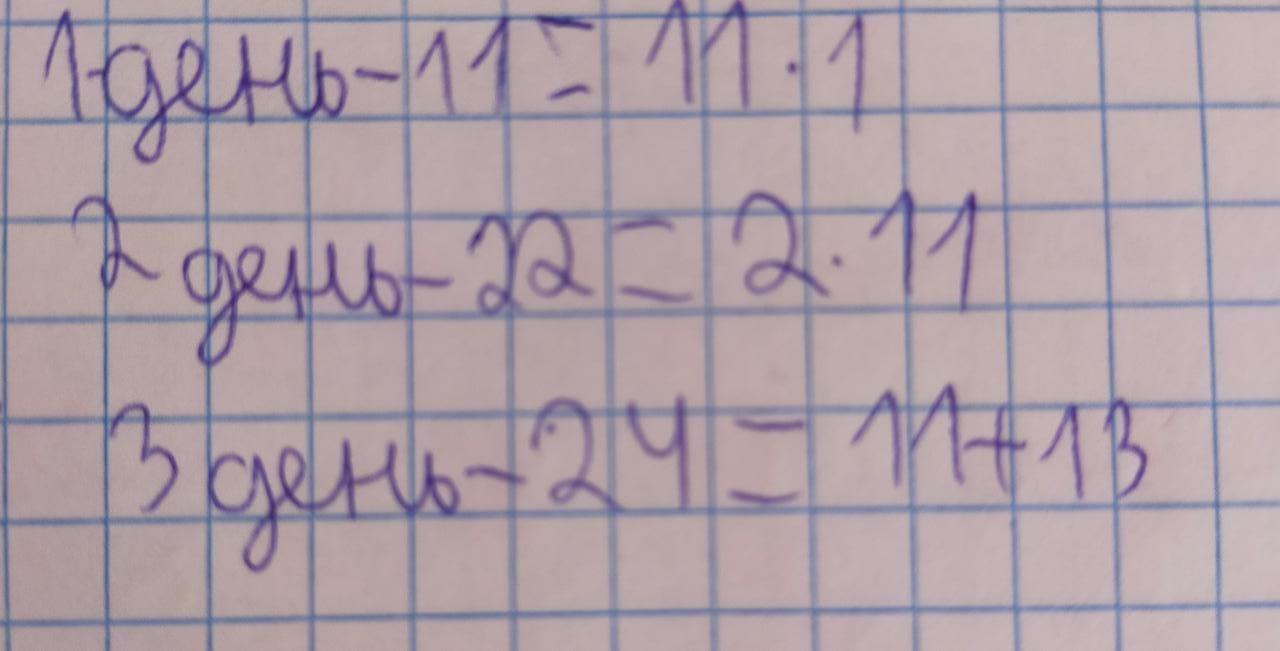 1 день - 11 = 11 · 1
2 день - 22 = 2 · 11
3 день - 24 = 11 + 13